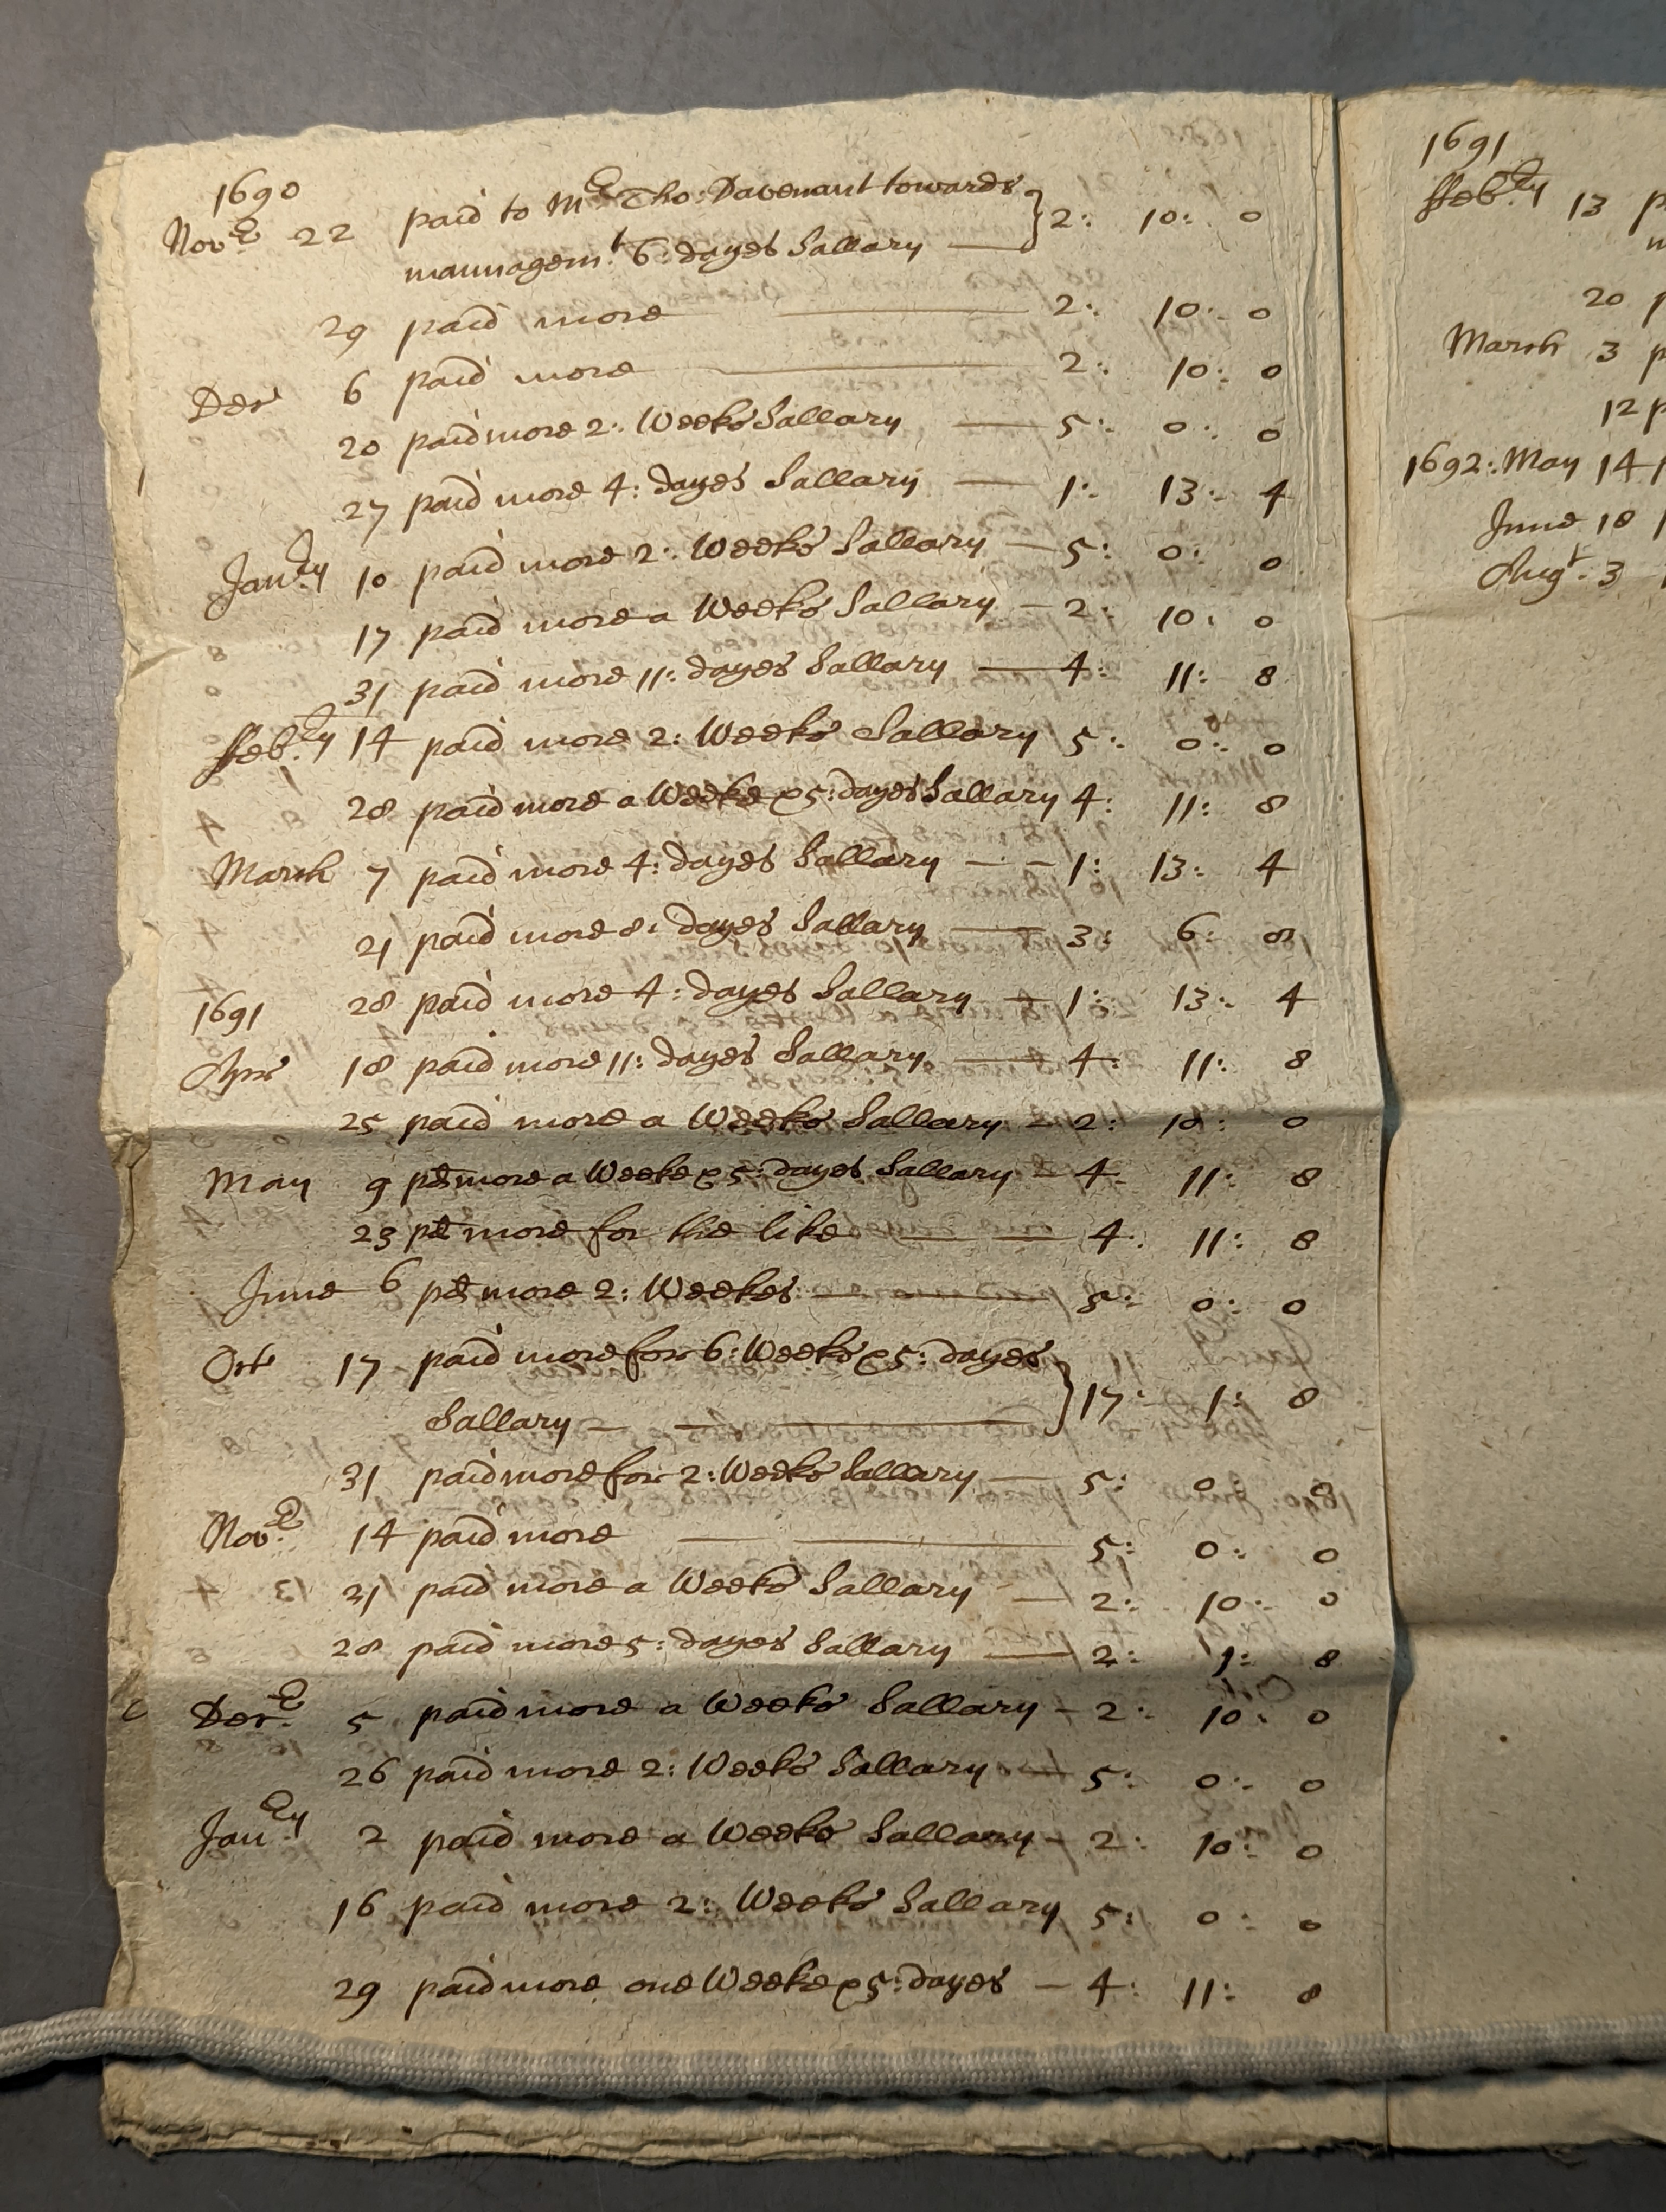 1690
Novr 22 paid to Mr Tho: Davenant towards
mannagemt 6: dayes Sallary — } 2: 10: 0
29 paid more — 2: 10: 0
Decr 6 paid more — 2: 10: 0
20 paid more 2: Weeks Sallary — 5: 0: 0
27 paid more 4: dayes Sallary — 1: 13: 4
Janry 10 paid more 2: Weeks Sallary — 5: 0: 0
17 paid more a Weeks Sallary — 2: 10: 0
31 paid more 11: dayes Sallary — 4: 11: 8
ffebry 14 paid more 2: Weeks Sallary 5: 0: 0
28 paid more a Weeke & 5: dayes Sallary 4: 11: 8
March 7 paid more 4: dayes Sallary — 1: 13: 4
21 paid more 8: dayes Sallary — 3: 6: 8
1691 28 paid more 4: dayes Sallary — 1: 13: 4
Apr 18 paid more 11: dayes Sallary — 4: 11: 8
25 paid more a Weeks Sallary - 2: 10: 0
May 9 pd more a Weeke & 5: dayes Sallary - 4: 11: 8
23 pd more for the like — 4: 11: 8
June 6 pd more 2: Weekes — 5: 0: 0
Octr 17 paid more for 6: Weeks & 5: dayes
Sallary — } 17: 1: 8
31 paid more for 2: Weeks Sallary — 5: 0: 0
Novr 14 paid more — 5: 0: 0
21 paid more a Weeks Sallary — 2: 10: 0
28 paid more 5: dayes Sallary — 2: 1: 8
Decr 5 paid more a Weeks Sallary - 2: 10: 0
26 paid more 2: Weeks Sallary — 5: 0: 0
Janry 2 paid more a Weeks Sallary - 2: 10: 0
16 paid more 2: Weeks Sallary 5: 0: 0
29 paid more one Weeke & 5: dayes — 4: 11: 8
1691
ffebry 13 p
20 p
March 3 p
12 p
1692: May 14
June 18
Augt 3